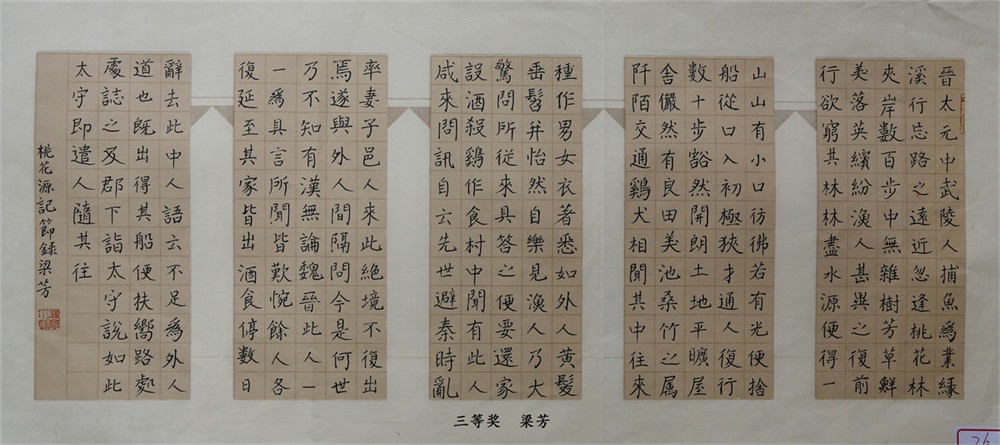 晉太元中武陵人捕魚為業緣
溪行忘路之遠近忽逢桃花林
夾岸數百步中無雜樹芳草鮮
美落英繽紛漁人甚異之復前
行欲窮其林林盡水源便得一
山山有小口彷彿若有光便捨
船從口入初極狹才通人復行
數十步豁然開朗土地平曠屋
舍儼然有良田美池桑竹之属
阡陌交通鷄犬相聞其中往來
種作男女衣著悉如外人黃髮
垂髫并怡然自樂見漁人乃大
驚問所從來具答之便要還家
設酒殺鷄作食村中聞有此人
咸來問訊自云先世避秦時亂
率妻子邑人來此絕境不復出
焉遂與外人間隔問今是何世
乃不知有漢無論魏晉此人一
一為具言所聞皆歎惋餘人各
復延至其家皆出酒食停數日
辭去此中人語云不足為外人
道也既出得其船便扶嚮路處
處誌之及郡下詣太守說如此
太守即遣人隨其往
桃花源記節錄梁芳
三等奖 梁芳
26